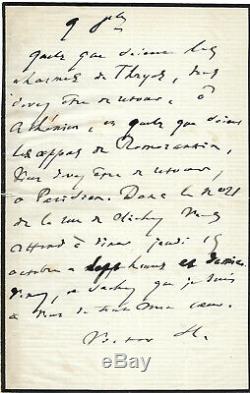 9 8bre
quels que soient les
charmes de Thryos, vous
devez être de retour, ô
Athénien, et quels que soient
les appas de Romorantin,
vous devez être de retour,
ô Parisien. Donc le no 21
de la rue de Clichy vous
attend à dîner jeudi 15
octobre à sept heures et demie.
Venez, et sachez que je suis
à vous de tout mon cœur.
Victor H.